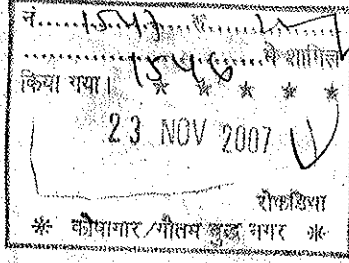 नं.....1543.....से.....
.....1546.....में शामिल
किया गया। ✶ ✶ ✶ ✶
23 NOV 2007
रोकडिया
✶ कोषागार/गौतम बुद्ध नगर ✶